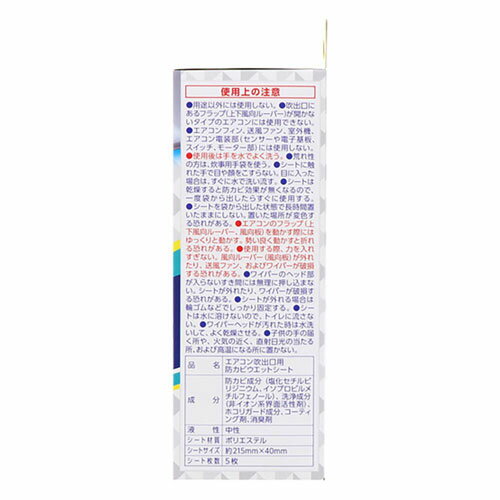 使用上の注意
●用途以外には使用しない。●吹出口に
あるフラップ(上下風向ルーバー)が開かな
いタイプのエアコンには使用できない。
●エアコンフィン、送風ファン、室外機、
エアコン電装部(センサーや電子基板、
スイッチ、モーター部)には使用しない。
●使用後は手を水でよく洗う。●荒れ性
の方は、炊事用手袋を使う。●シートに触
れた手で目や顔をこすらない。目に入った
場合は、すぐに水で洗い流す。●シートは
乾燥すると防カビ効果が無くなるので、
一度袋から出したらすぐに使用する。
●シートを袋から出した状態で長時間置
いたままにしない。置いた場所が変色する
恐れがある。●エアコンのフラップ(上
下風向ルーバー、風向板)を動かす際には
ゆっくりと動かす。勢い良く動かすと折れ
る恐れがある。●使用する際、力を入れ
すぎない。風向ルーバー(風向板)が外れ
たり、送風ファン、およびワイパーが破損
する恐れがある。●ワイパーのヘッド部
が入らないすき間には無理に押し込まな
い。シートが外れたり、ワイパーが破損す
る恐れがある。●シートが外れる場合は
輪ゴムなどでしっかり固定する。●シー
トは水に溶けないので、トイレに流さな
い。●ワイパーヘッドが汚れた時は水洗
いして、よく乾燥させる。●子供の手の届
く所や、火気の近く、直射日光の当たる
所、および高温になる所に置かない。
品名 エアコン吹出口用
防カビウエットシート
成分 防カビ成分(塩化セチルピ
リジニウム、イソプロピルメ
チルフェノール)、洗浄成分
(非イオン系界面活性剤)、
ホコリガード成分、コーティ
ング剤、消臭剤
液性 中性
シート材質 ポリエステル
シートサイズ 約215mm×40mm
シート枚数 5枚